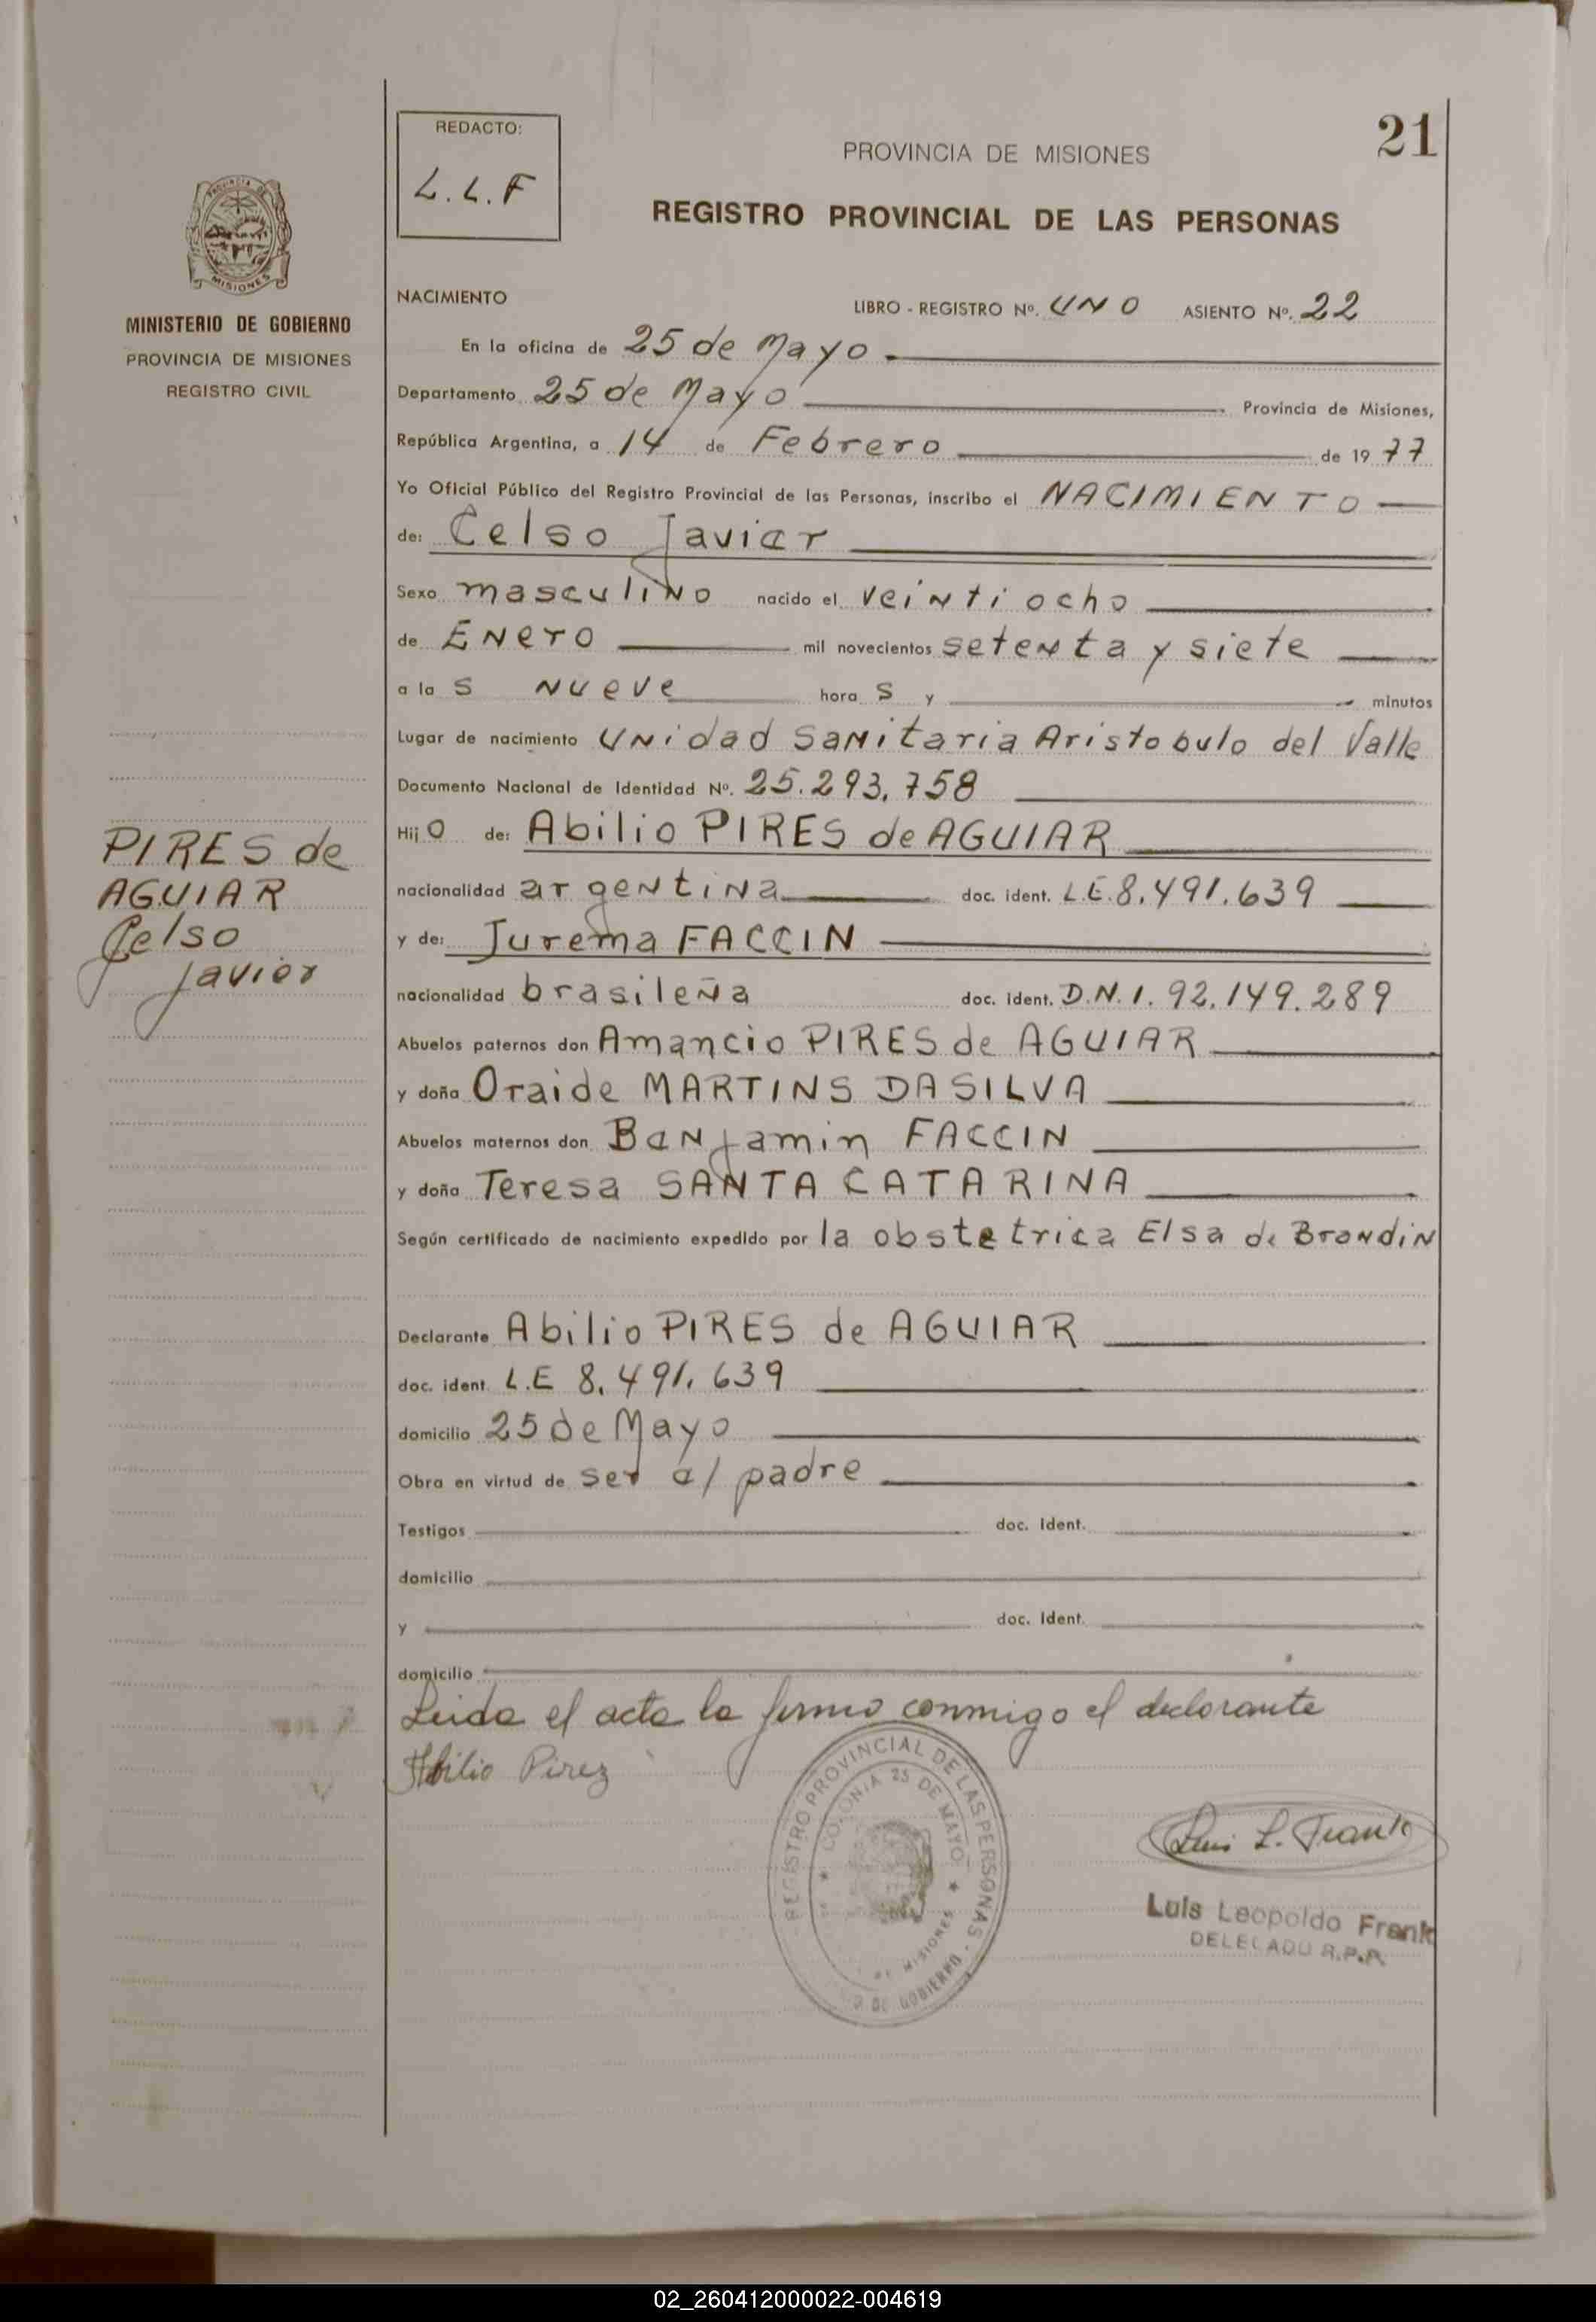 21
REDACTO:
L.L.F
PROVINCIA DE MISIONES
REGISTRO PROVINCIAL DE LAS PERSONAS
PROVINCIA DE
MISIONES
MINISTERIO DE GOBIERNO
PROVINCIA DE MISIONES
REGISTRO CIVIL
NACIMIENTO LIBRO - REGISTRO Nº. UNO ASIENTO Nº. 22
En la oficina de 25 de Mayo
Departamento 25 de Mayo Provincia de Misiones,
República Argentina, a 14 de Febrero de 1977
Yo Oficial Público del Registro Provincial de las Personas, inscribo el NACIMIENTO
de: Celso Javier
Sexo masculino nacido el veinti ocho
de Enero mil novecientos setenta y siete
a las nueve horas y minutos
Lugar de nacimiento Unidad Sanitaria Aristobulo del Valle
Documento Nacional de Identidad Nº. 25.293.758
Hijo de: Abilio PIRES de AGUIAR
nacionalidad argentina doc. ident. L.E. 8.491.639
y de: Jurema FACCIN
nacionalidad brasileña doc. ident. D.N.I. 92.149.289
Abuelos paternos don Amancio PIRES de AGUIAR
y doña Oraide MARTINS DA SILVA
Abuelos maternos don Benjamin FACCIN
y doña Teresa SANTA CATARINA
Según certificado de nacimiento expedido por la obstetrica Elsa de Brondin
Declarante Abilio PIRES de AGUIAR
doc. ident. L.E 8.491.639
domicilio 25 de Mayo
Obra en virtud de ser el padre
Testigos doc. ident.
domicilio
y doc. ident.
domicilio
Leida el acta la firma conmigo el declarante
Abilio Pirez
PIRES de
AGUIAR
Celso
Javier
REGISTRO PROVINCIAL DE LAS PERSONAS
COLONIA 25 DE MAYO
MISIONES
DE GOBIERNO
Luis L. Frank
Luis Leopoldo Frank
DELEGADO R.P.P.
02_260412000022-004619